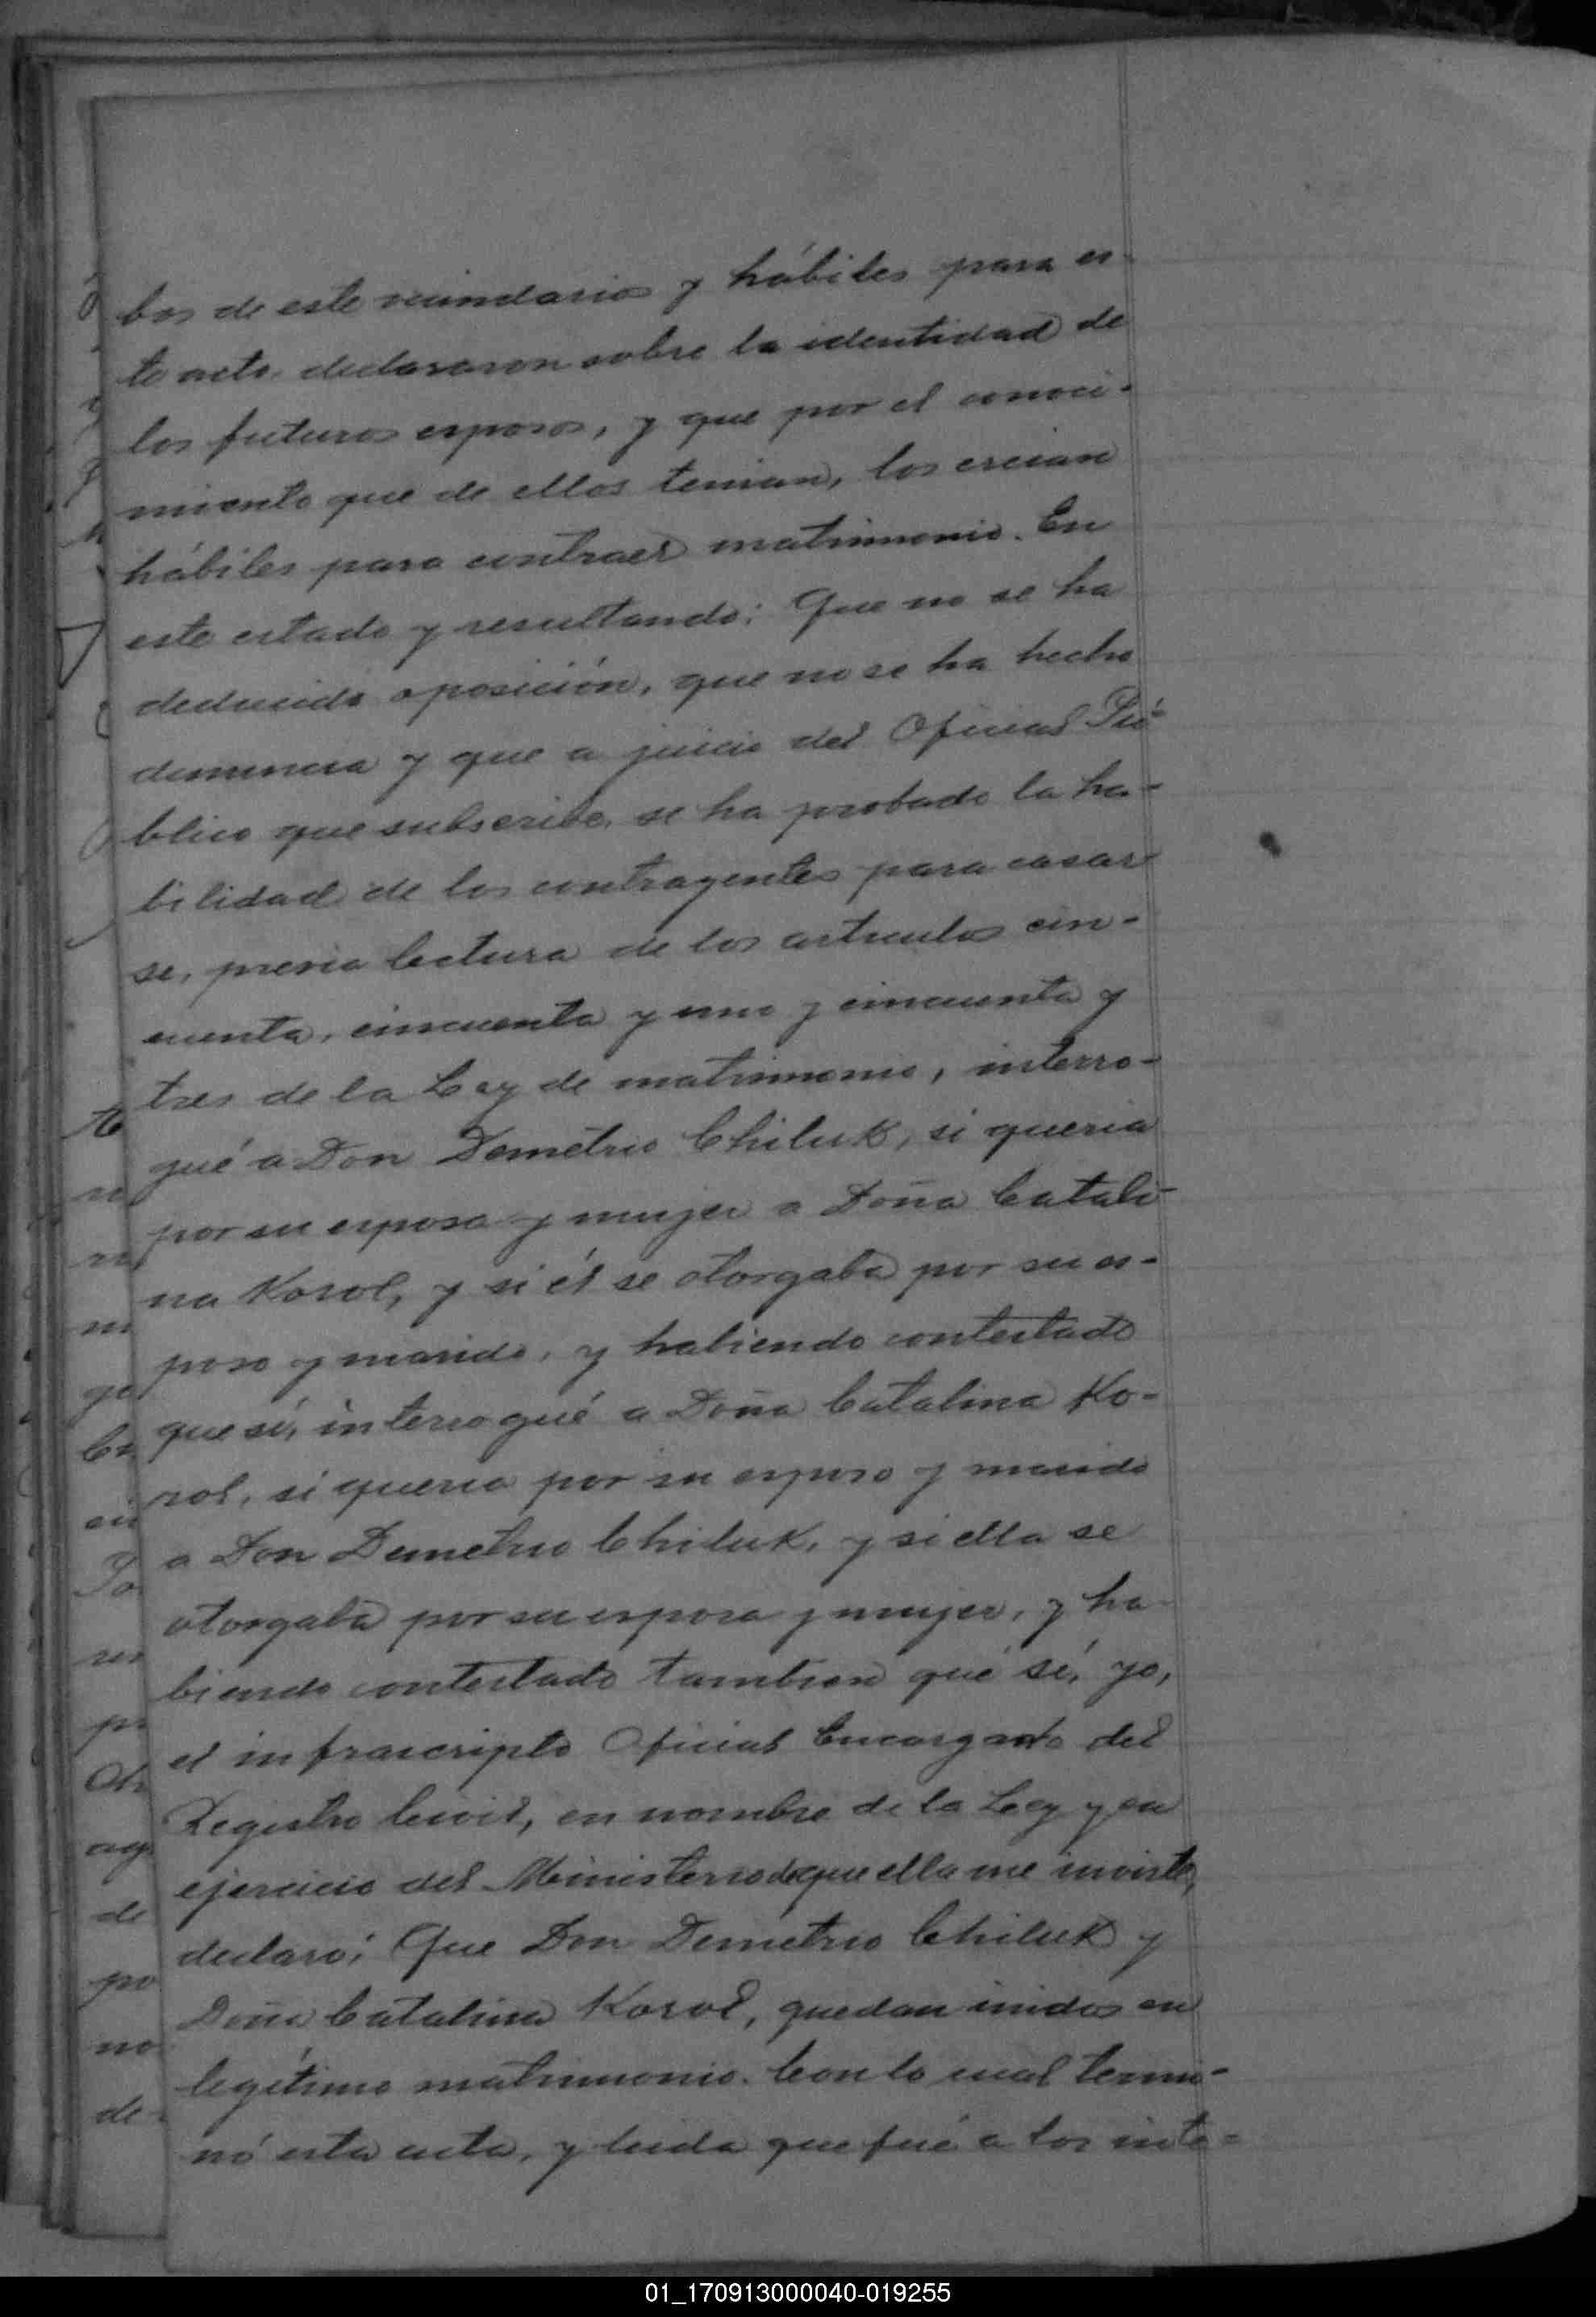 bos de este vecindario y hábiles para es-
te acto, declararon sobre la identidad de
los futuros esposos, y que por el conoci-
miento que de ellos tenian, los creian
hábiles para contraer matrimonio. En
este estado y resultando: Que no se ha
deducido oposición, que no se ha hecho
denuncia y que a juicio del Oficial Pú-
blico que subscribe, se ha probado la ha-
bilidad de los contrayentes para casar
se, previa lectura de los artículos cin-
cuenta, cincuenta y uno y cincuenta y
tres de la Ley de matrimonio, interro-
gué a Don Demetrio Chiluk, si queria
por su esposa y mujer a Doña Catali-
na Korol, y si él se otorgaba por su es-
poso y marido, y habiendo contestado
que sí, interrogué a Doña Catalina Ko-
rol, si queria por su esposo y marido
a Don Demetrio Chiluk, y si ella se
otorgaba por su esposa y mujer, y ha-
biendo contestado tambien qué sí, yo,
el infrascripto Oficial Encargado del
Registro Civil, en nombre de la Ley y en
ejercicio del Ministerio de que ella me inviste,
declaro: Que Don Demetrio Chiluk y
Doña Catalina Korol, quedan unidos en
legítimo matrimonio. Con lo cual termi-
nó esta acta, y leida que fué a los inte-
01_170913000040-019255